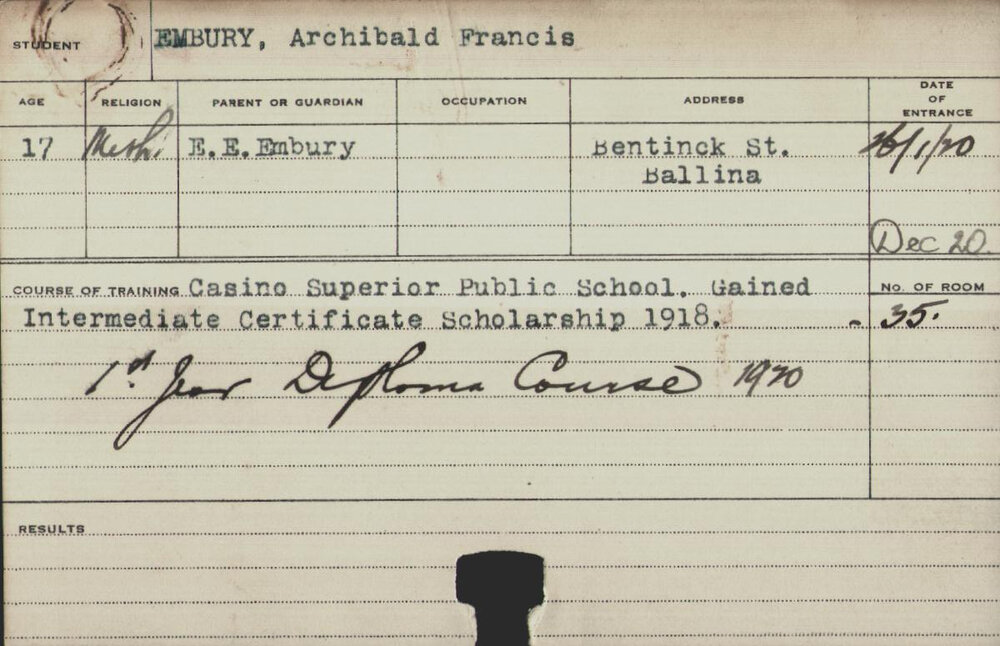 STUDENT EMBURY, Archibald Francis
AGE RELIGION PARENT OR GUARDIAN OCCUPATION ADDRESS DATE OF ENTRANCE
17 Meth. E.E.Embury Bentinck St. 26/1/20
Ballina
Dec 20.
COURSE OF TRAINING Casino Superior Public School. Gained No. OF ROOM
Intermediate Certificate Scholarship 1918. - 35.
1st Year Diploma Course 1920
RESULTS